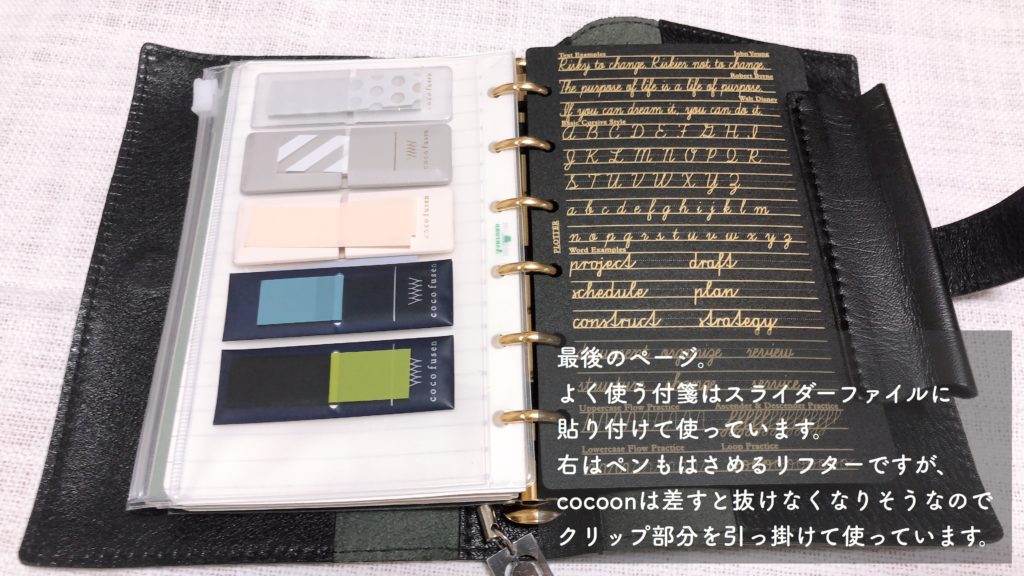 cocofusen
cocofusen
cocofusen
cocofusen
cocofusen
PLOTTER
Text Examples John Young
Risky to change. Riskier not to change.
Robert Byrne
The purpose of life is a life of purpose.
Walt Disney
If you can dream it, you can do it.
Basic Cursive Style
A B C D E F G H I
J K L M N O P Q R
S T U V W X Y Z
a b c d e f g h i j k l m
n o p q r s t u v w x y z
Word Examples
project draft
schedule plan
construct strategy
review
service
Uppercase Flow Practice Ascender & Descender Practice
Lowercase Flow Practice Loop Practice
最後のページ。
よく使う付箋はスライダーファイルに
貼り付けて使っています。
右はペンもはさめるリフターですが、
cocoonは差すと抜けなくなりそうなので
クリップ部分を引っ掛けて使っています。